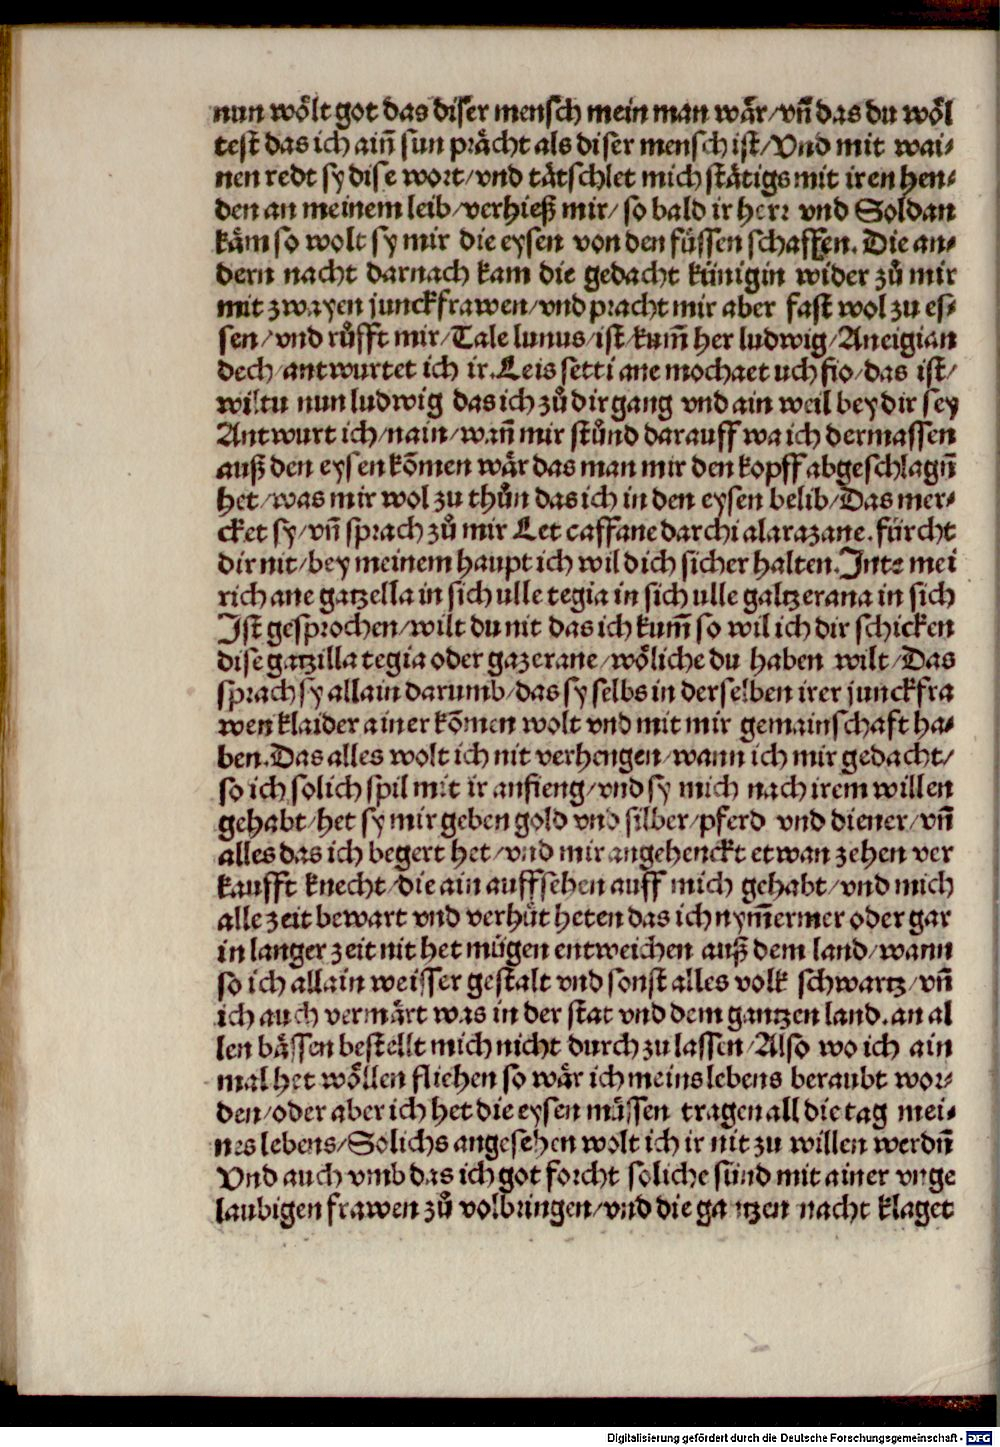 nun wölt got das diser mensch mein man wär/vñ das du wöl
test das ich aiñ sun prächt als diser mensch ist/Vnd mit wai-
nen redt sy dise wort/vnd tätschlet mich stätigs mit iren hen-
den an meinem leib/verhieß mir/ so bald ir herꝛ vnd Soldan
käm so wolt sy mir die eysen von den füssen schaffen. Die an-
dern nacht darnach kam die gedacht künigin wider zů mir
mit zwayen junckfrawen/vnd pracht mir aber fast wol zu es-
sen/vnd růfft mir/Tale lunus/ist/kum̃ her ludwig/Aneigian
dech/antwurtet ich ir.Leis setti ane mochaet uch fio/das ist/
wiltu nun ludwig das ich zů dir gang vnd ain weil bey dir sey
Antwurt ich/nain/wañ mir stůnd darauff wa ich dermassen
auß den eysen kõmen wär das man mir den kopff abgeschlagñ
het/was mir wol zu thůn das ich in den eysen belib/Das mer-
cket sy/vñ sprach zů mir Let caffane darchi alarazane.fürcht
dir nit/bey meinem haupt ich wil dich sicher halten.Jnte mei
rich ane gatzella in sich ulle tegia in sich ulle galtzerana in sich
Jst gesprochen/wilt du nit das ich kum̃ so wil ich dir schicken
dise gatzilla tegia oder gazerane/wöliche du haben wilt/Das
sprach sy allain darumb/das sy selbs in derselben irer junckfra
wen klaider ainer kõmen wolt vnd mit mir gemainschaft ha-
ben.Das alles wolt ich nit verhengen/wann ich mir gedacht/
so ich solich spil mit ir anfieng/vnd sy mich nach irem willen
gehabt/het sy mir geben gold vnd silber/pferd vnd diener/vñ
alles das ich begert het/vnd mir angehenckt etwan zehen ver
kaufft knecht/die ain auffsehen auff mich gehabt/vnd mich
alle zeit bewart vnd verhüt heten das ich nym̃ermer oder gar
in langer zeit nit het mügen entweichen auß dem land/wann
so ich allain weisser gestalt vnd sonst alles volk schwartz/vñ
ich auch vermärt was in der stat vnd dem gantzen land.an al
len bässen bestellt mich nicht durch zu lassen/Also wo ich ain
mal het wöllen fliehen so wär ich meins lebens beraubt wor-
den/oder aber ich het die eysen müssen tragen all die tag mei-
nes lebens/Solichs angesehen wolt ich ir nit zu willen werdñ
Vnd auch vmb das ich got forcht soliche sünd mit ainer vnge
laubigen frawen zů volbringen/vnd die gantzen nacht klaget
Digitalisierung gefördert durch die Deutsche Forschungsgemeinschaft - DFG